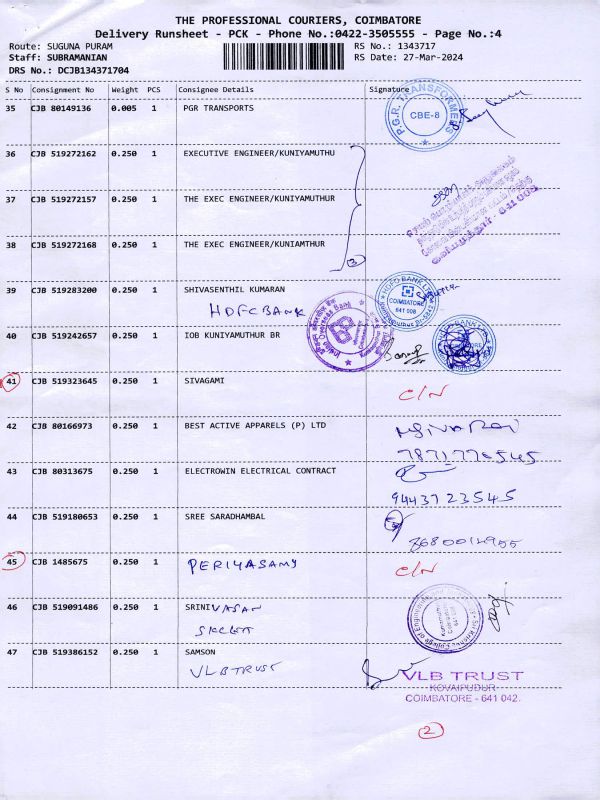 THE PROFESSIONAL COURIERS, COIMBATORE
Delivery Runsheet - PCK - Phone No.:0422-3505555 - Page No.:4
Route: SUGUNA PURAM
RS No.: 1343717
Staff: SUBRAMANIAN
RS Date: 27-Mar-2024
DRS No.: DCJB134371704
S No Consignment No Weight PCS Consignee Details Signature
35 CJB 80149136 0.005 1 PGR TRANSPORTS
P.G.R. TRANSFORMERS
CBE-8
36 CJB 519272162 0.250 1 EXECUTIVE ENGINEER/KUNIYAMUTHU
37 CJB 519272157 0.250 1 THE EXEC ENGINEER/KUNIYAMUTHUR
38 CJB 519272168 0.250 1 THE EXEC ENGINEER/KUNIAMTHUR
3
39 CJB 519283200 0.250 1 SHIVASENTHIL KUMARAN
HDFC BANK
HDFC BANK LTD
COIMBATORE
641 008
40 CJB 519242657 0.250 1 IOB KUNIYAMUTHUR BR
Indian Overseas Bank
41 CJB 519323645 0.250 1 SIVAGAMI C/N
42 CJB 80166973 0.250 1 BEST ACTIVE APPARELS (P) LTD
43 CJB 80313675 0.250 1 ELECTROWIN ELECTRICAL CONTRACT
9443723545
44 CJB 519180653 0.250 1 SREE SARADHAMBAL
45 CJB 1485675 0.250 1 PERIYASAMY C/N
46 CJB 519091486 0.250 1 SRINIVASAN
SKCET
47 CJB 519386152 0.250 1 SAMSON
VLB TRUST
VLB TRUST
KOVAIPUDUR
COIMBATORE - 641 042.
2